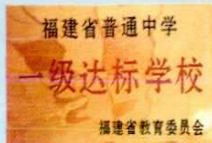 福建省普通中学
一级达标学校
福建省教育委员会